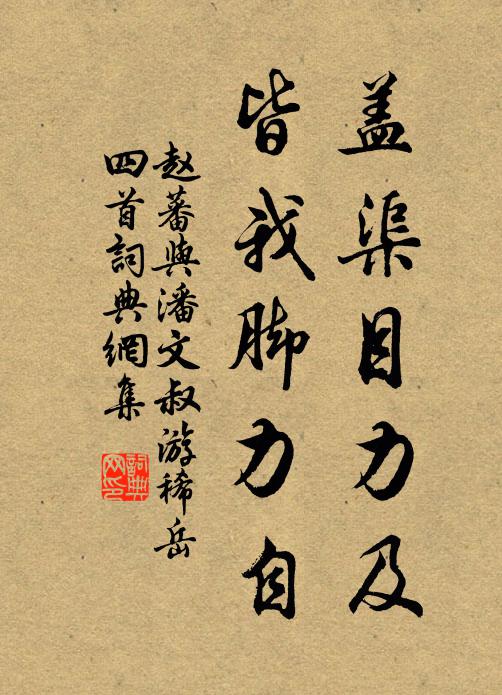 盖渠目力及
皆我脚力自
赵蕃與潘文叔游稀岳
四首詞典網集
詞典
网印